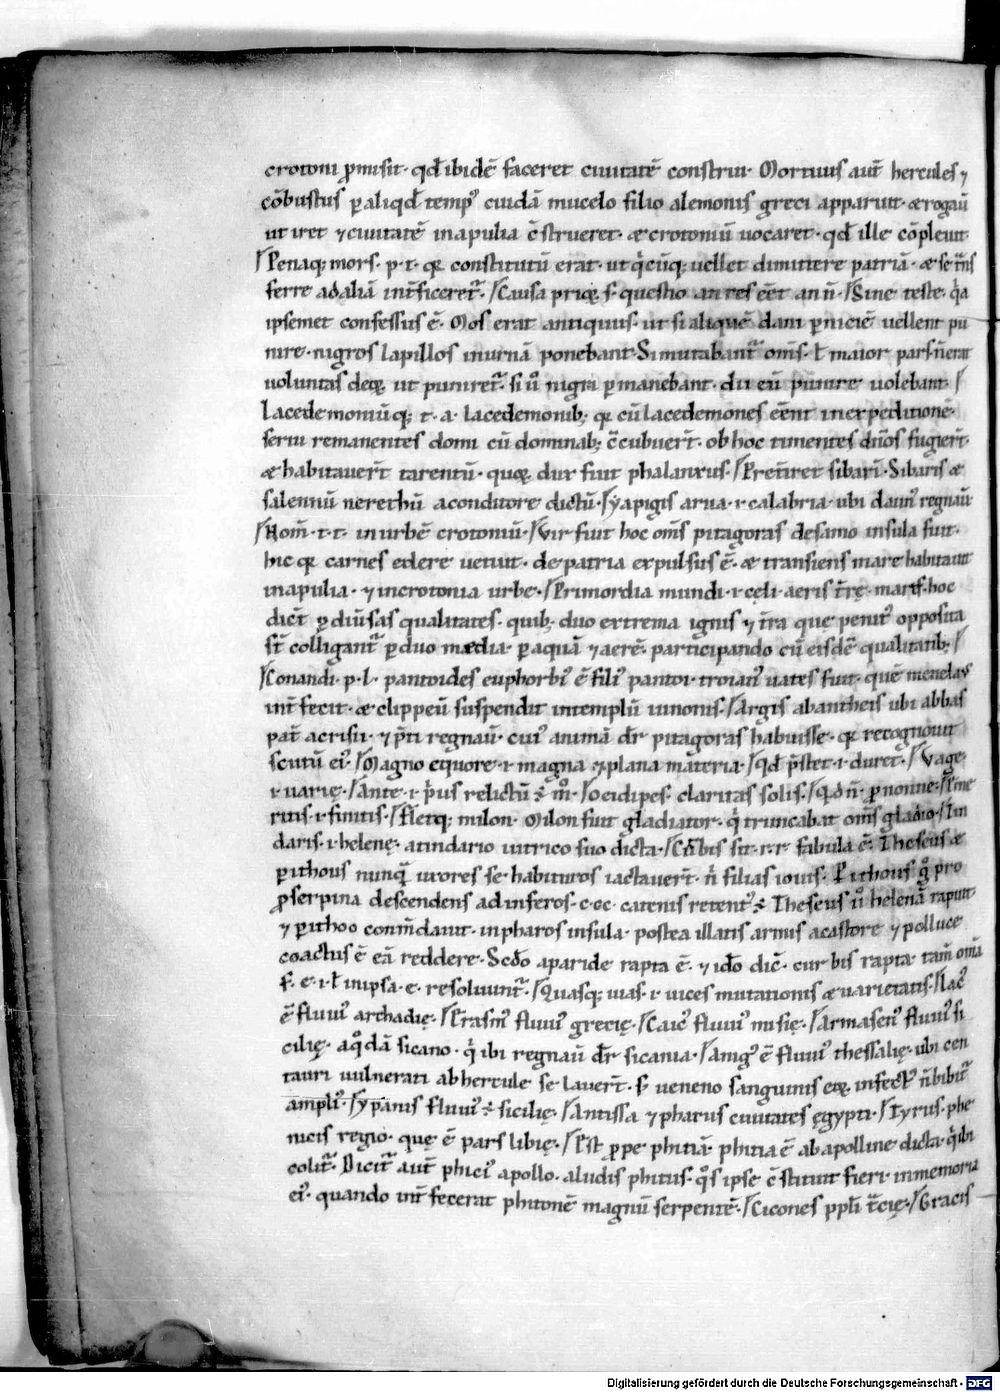 crotoni ꝓmisit· qđ ibidē faceret ciuitatē construi· Mortuus aut̄ hercules ⁊
cōbustus ꝑ aliqđ temp᷒ cuidā mucelo filio alemonis greci apparuit· & rogaū
ut iret ⁊ ciuitatē in apulia c̄strueret· & crotoniū uocaret· qđ ille cōpleuit·
Penaq; mors· p· t· qꝫ constitutū erat· ut q̇cūq; uellet dimittere patriā· & se
ferre ad aliā int̄ficeret᷑· Causa priꝫ s· questio an res eēt an n̄· Sine teste· q̇a
ipsemet confessus ē· Mos erat antiquus· ut si aliquē dam ꝑniciē uellent pu
nire· nigros lapillos in urnā ponebant· Si mutabant᷑ om̄s· ł maior pars n̄ erat
uoluntas deoꝝ ut puniret᷑· si ů nigri ꝑmanebant· dii eū punire uolebant·
Lacedemoniūq; t· a· lacedemonib; qꝫ cū lacedemones eēnt in expeditione·
serui remanentes domi cū dominab; c̄cubuer̄t· ob hoc timentes dn̄os fugier̄t·
& habitauer̄t tarentū· quoꝝ dux fuit phalantus· Pret̄iret sibari· Sibaris &
salennū nerethū a conditore dictū· Iapigis arua· i· calabria· ubi daun᷒ regnaū
Rom̄· t· t· in urbē crotoniū· Vir fuit hoc om̄s pitagoras de samo insula fuit·
hic qꝫ carnes edere uetuit· de patria expulsus ē· & transiens mare habitauit
in apulia· ⁊ in crotonia urbe· Primordia mundi· i· cęli· aeris t̄rę· maris· hoc
dic̄t ꝓ diu̇sas qualitates· quib; duo extrema ignis ⁊ t̄ra que penit᷒ opposita
st̄ colligant᷑ ꝑ duo media· ꝑ aquā ⁊ aerē· participando cū eisdē qualitatib;
Conandi· p· l· pantoides euphorb᷒ ē fili᷒ pantoi· troian᷒ uates fuit· quē menelaus
int̄fecit· & clippeū suspendit in templū iunonis· Argis abantheis ubi abbas
pat̄ acrisii· ⁊ p̄ti regnaū· cui᷒ animā dr̄ pitagoras habuisse· qꝫ recognouit
scutū ei᷒· Magno equore· i· magna & plana materia· qđ p̄stet· i· duret᷑· Vage·
i· uarię· Ante· i· p̓us relictū ÷ m̊· Lucidipes· claritas solis· qđ n̄· ꝓ nonne· Eme
ritis· i· finitis· Fletq; milon· Milon fuit gladiator· q̇ truncabat om̄s gladio· Tin
daris· i· helenę· a tindario uitrico suo dicta· Cur bis sit· r· r· fabula ē· Theseus &
ꝑithous nunq̄ uxores se habituros iactauer̄t· n̓ filias iouis· Pithous g̊ pro
ꝓserpina descendens ad inferos· c· cc· catenis retent᷒ ÷ Theseus ů helenā rapuit·
⁊ ꝑithoo com̄dauit· in pharos insula· postea illatis armis a castore ⁊ polluce
coactus ē eā reddere· Scđo a paride rapta ē· ⁊ ido dic̄· cur bis rapta· tam̄ omīa
f· e· i· ł in ipsa· e· resoluunt᷑· Quasq; uias· i· uices mutationis & uarietatis· Lac᷒
ē fluui᷒ archadię· Erasin᷒ fluui᷒ grecię· Caic᷒ fluui᷒ misię· Armasen᷒ fluui᷒ si
cilię· a q̊dā sicano· q̇ ibi regnaū dr̄ sicania· Anig᷒ ē fluui᷒ thessalię· ubi cen
tauri uulnerati ab hercule se lauer̄t· s; ueneno sanguinis eoꝝ infect᷒ n̄ bibit᷑
ampli᷒· Ypanis fluui᷒ ÷ sicilię· Antissa ⁊ pharus ciuitates ęgypti· Tyrus· phe
nicis regio· quę ē pars libię· Est ꝓpe phitiā· phitia ē ab apolline dicta· q̇ ibi
colit᷑· Dicit᷑ aut̄ phici᷒ apollo· a ludis phitus· q̊s ipse c̄stituit fieri in memoria
ei᷒· quando int̄fecerat phitonē magnū serpentē· Cicones ppl̄i t̄cię· Gracis
Digitalisierung gefördert durch die Deutsche Forschungsgemeinschaft - DFG